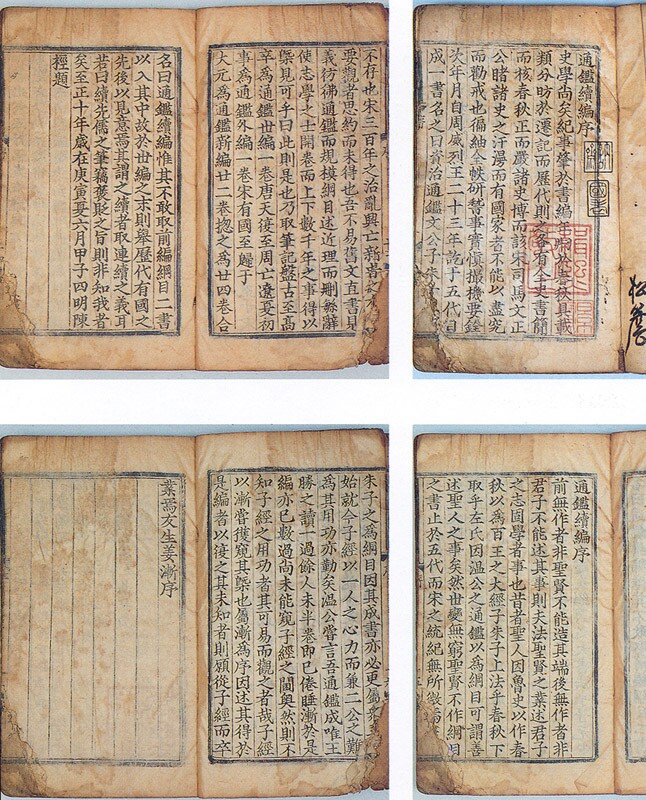 通鑑續編序
史學尚矣紀事肇於書編年昉於春秋具載
類分昉於遷記而歷代則之各有全史書簡
而核春秋正而嚴諸史博而該宋司馬文正
公睹諸史之汗漫而有國家者不能以盡究
而勸戒也徧紬金帙研覈事實慎撮機要銓
次年月自周威烈王二十三年訖十五代目
成一書名之曰資治通鑑文公子朱子
國書
松
不存也宋三百年之治亂興亡新嘗
要觀者思約而未得也吾不易舊文直書見
義彷彿通鑑而規模綱目述近理而刪縣辭
使志學之士開卷而上下數千年之事得以
槩見可乎曰此則是也乃取筆記盤古至高
辛為通鑑世編一卷唐天復至周亡遼夏初
事為通鑑外編一卷宋有國至歸于
大元為通鑑新編廿二卷揔之為廿四卷合
名曰通鑑續編惟其不敢取前編綱目二書
以入其中故於世編之末則舉歷代有國之
先後以見意焉其謂之續者取連續之義耳
若曰續先儒之筆竊褒貶之旨則非知我者
矣至正十年歲在庚寅夏六月甲子四明陳
桱題
通鑑續編序
前無作者非聖賢不能造其端後無作者非
君子不能述其事則夫法聖賢之業述君子
之志固學者事也昔者聖人因魯史以作春
秋以為百王之大經子朱子上法乎春秋下
取乎左氏因溫公之通鑑以為綱目可謂善
述聖人之事矣然世變無窮聖賢不作綱目
之書止於五代而宋之統紀無所徵
朱子之為綱目因其成書亦必更屬
始就今子經以一人之心力而兼二公之難
為其用功亦勤矣溫公嘗言吾通鑑成唯王
勝之讀一過餘人未半卷即已倦睡漸於是
編亦已數過尚未能窺子經之閫奧然則不
知子經之用功者其可易而觀之者哉子經
以漸嘗獲窺其槩也屬漸為序因述其得於
是編者以復之其未知者則願從子經而卒
業焉友生姜漸序